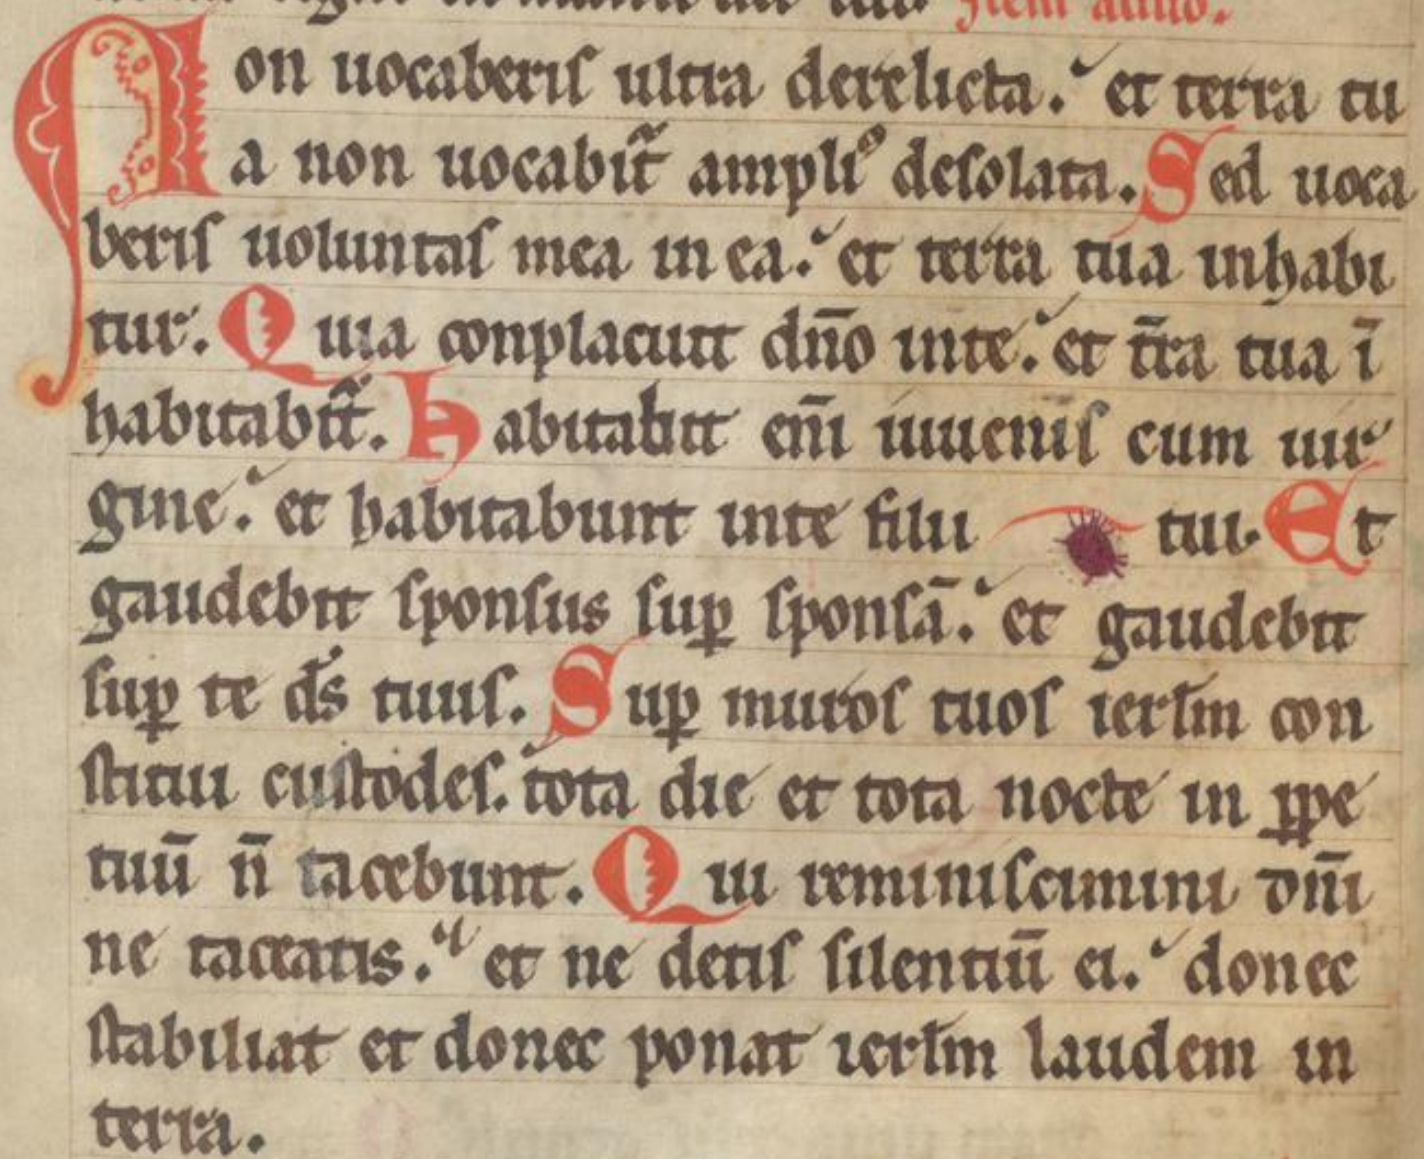 Item alind.
Non uocaberis ultra derelicta. et terra tu
a non uocabit̃ ampliꝰ desolata. Sed uoca
beris uoluntas mea in ea. et terra tua inhabi
tur. Quia conplacuit dn̄o inte. et t̄ra tua ī
habitabit̃. Habitabit em̄i iuuenis cum uir
gine. et habitabunt inte filii tui. Et
gaudebit sponsus suꝑ sponsā. et gaudebit
suꝑ te ds̄ tuus. Suꝑ muros tuos ierl̄m con
stitui custodes. tota die et tota nocte in ꝑpe
tuū n̄ tacebunt. Qui reminiscimini dn̄i
ne taceatis. et ne detis silentiū ei. donec
stabiliat et donec ponat ierl̄m laudem in
terra.